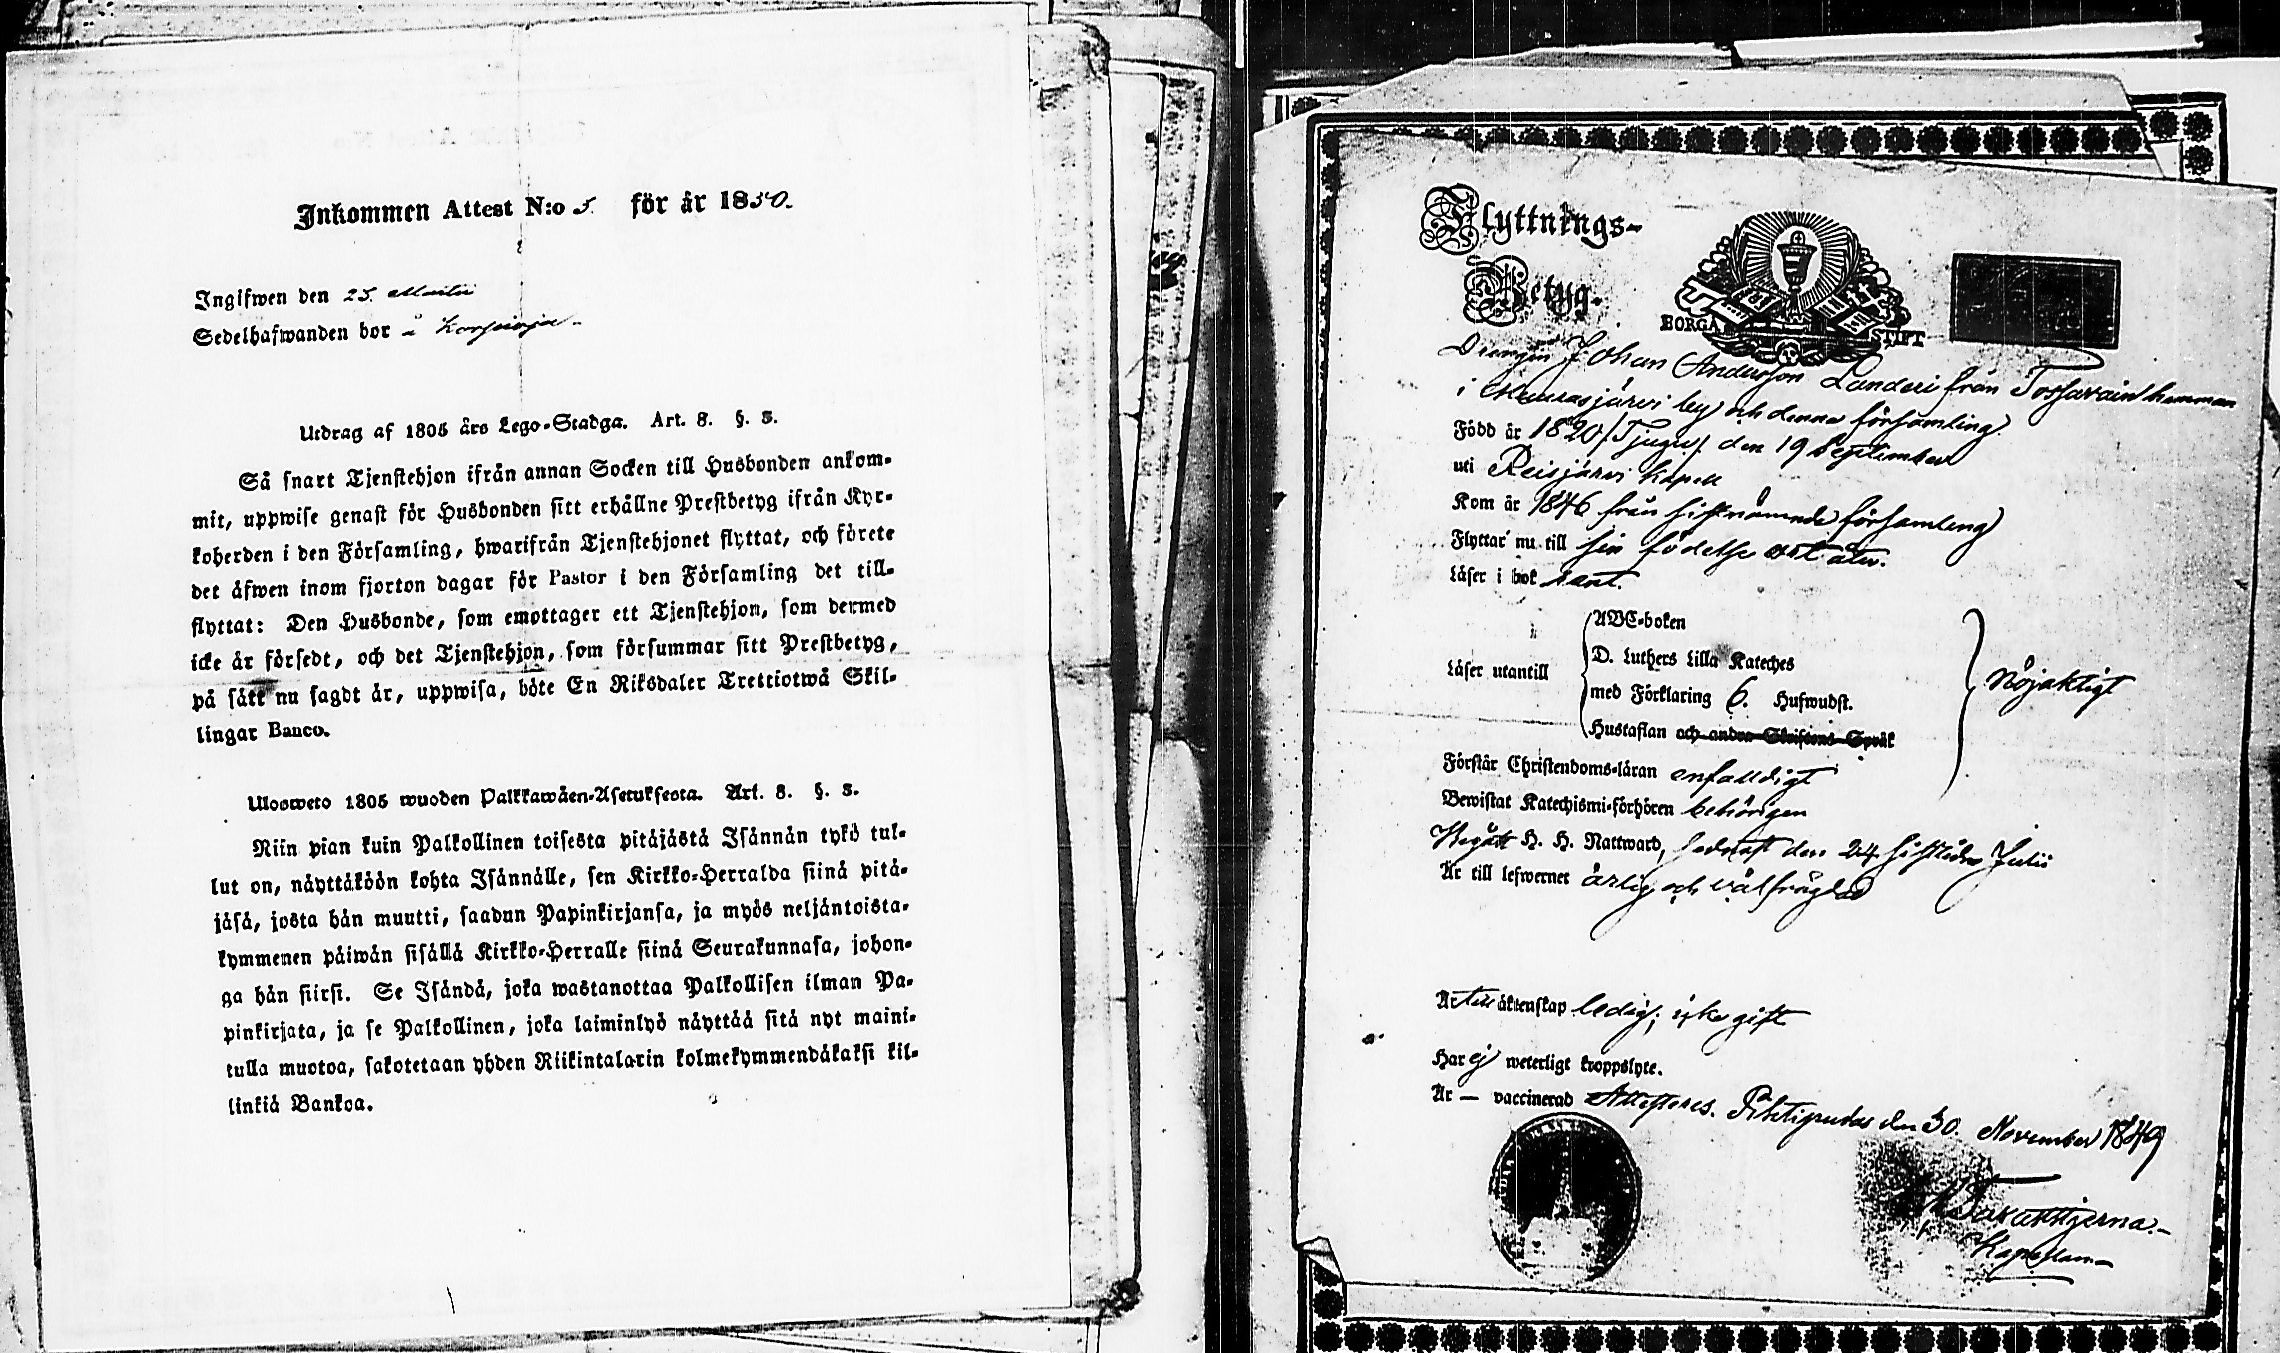 Inkommen Attest N:o 5. för år 1850.
Ingifwen den 25. Martii
Sedelhafwanden bor å Korpioja.
Utdrag af 1805 års Lego-Stadga. Art. 8. §. 3.
Så snart Tjenstehjon ifrån annan Socken till Husbonden ankom-
mit, uppwise genast för Husbonden sitt erhållne Prestbetyg ifrån Kyr-
koherden i den Församling, hwarifrån Tjenstehjonet flyttat, och förete
det äfwen inom fjorton dagar för Pastor i den Församling det till-
flyttat: Den Husbonde, som emottager ett Tjenstehjon, som dermed
icke är försedt, och det Tjenstehjon, som försummar sitt Prestbetyg,
på sätt nu sagdt är, uppwisa, böte En Riksdaler Trettiotwå Skil-
lingar Banco.
Ulosweto 1805 wuoden Palkkawäen-Asetuksesta. Art. 8. §. 3.
Niin pian kuin Palkollinen toisesta pitäjästä Isännän tykö tul-
lut on, näyttäköön kohta Isännälle, sen Kirkko-Herralda siinä pitä-
jäsä, josta hän muutti, saadun Papinkirjansa, ja myös neljäntoista-
kymmenen päiwän sisällä Kirkko-Herralle siinä Seurakunnasa, johon-
ga hän siirsi. Se Isändä, joka wastanottaa Palkollisen ilman Pa-
pinkirjata, ja se Palkollinen, joka laiminlyö näyttää sitä nyt maini-
tulla muotoa, sakotetaan yhden Riikintalarin kolmekymmendäkaksi kil-
linkiä Bankoa.
Flyttnings-
Betyg.
BORGÅ STIFT
Drengen Johan Andersson Landeri från Tossavain hemman
i Muurasjärvi by och denna församling.
Född år 1820 /Tjugu/ den 19 September
uti Reisjärvi Kapell
Kom år 1846 från sistnämnde församling
Flyttar nu till sin födelse ort åter.
Läser i bok rent.
Läser utantill
ABC-boken
D. Luthers Lilla Kateches
med Förklaring 6. Hufwudst.
Hustaflan och andra Skriftens Språk
Nöjaktigt
Förstår Christendoms-läran enfaldigt
Bewistat Katechismi-förhören behörigen
Begått H. H. Nattward, sednast den 24 sistledne Julii
Är till lefwernet ärlig och välfrägdad
Är till äktenskap ledig; icke gift
Har ej weterligt kroppslyte.
Är — vaccinerad Attesteres. Pihtipudas den 30. November 1849
Kapellan